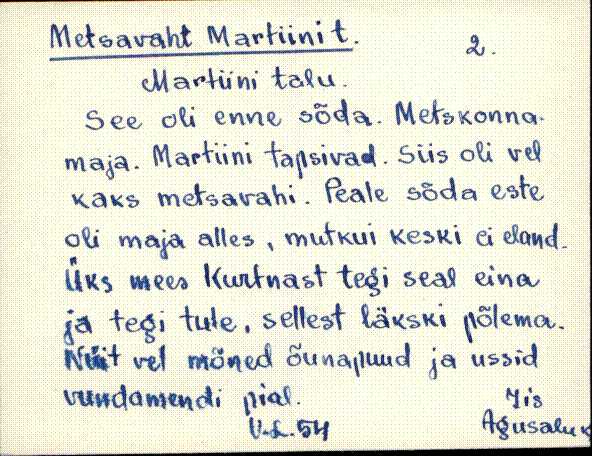 Metsavaht Martiinit.
2.
Martiini talu.
See oli enne sõda. Metskonna-
maja. Martiini tapsivad. Siis oli vel
kaks metsavahi. Peale sõda este
oli maja alles, mutkui keski ei eland.
Üks mees Kurtnast tegi seal eina
ja tegi tule, sellest läkski põlema.
Nüit vel mõned õunapuud ja ussid
vundamendi pial.
Jis
V.L.54
Agusaluk